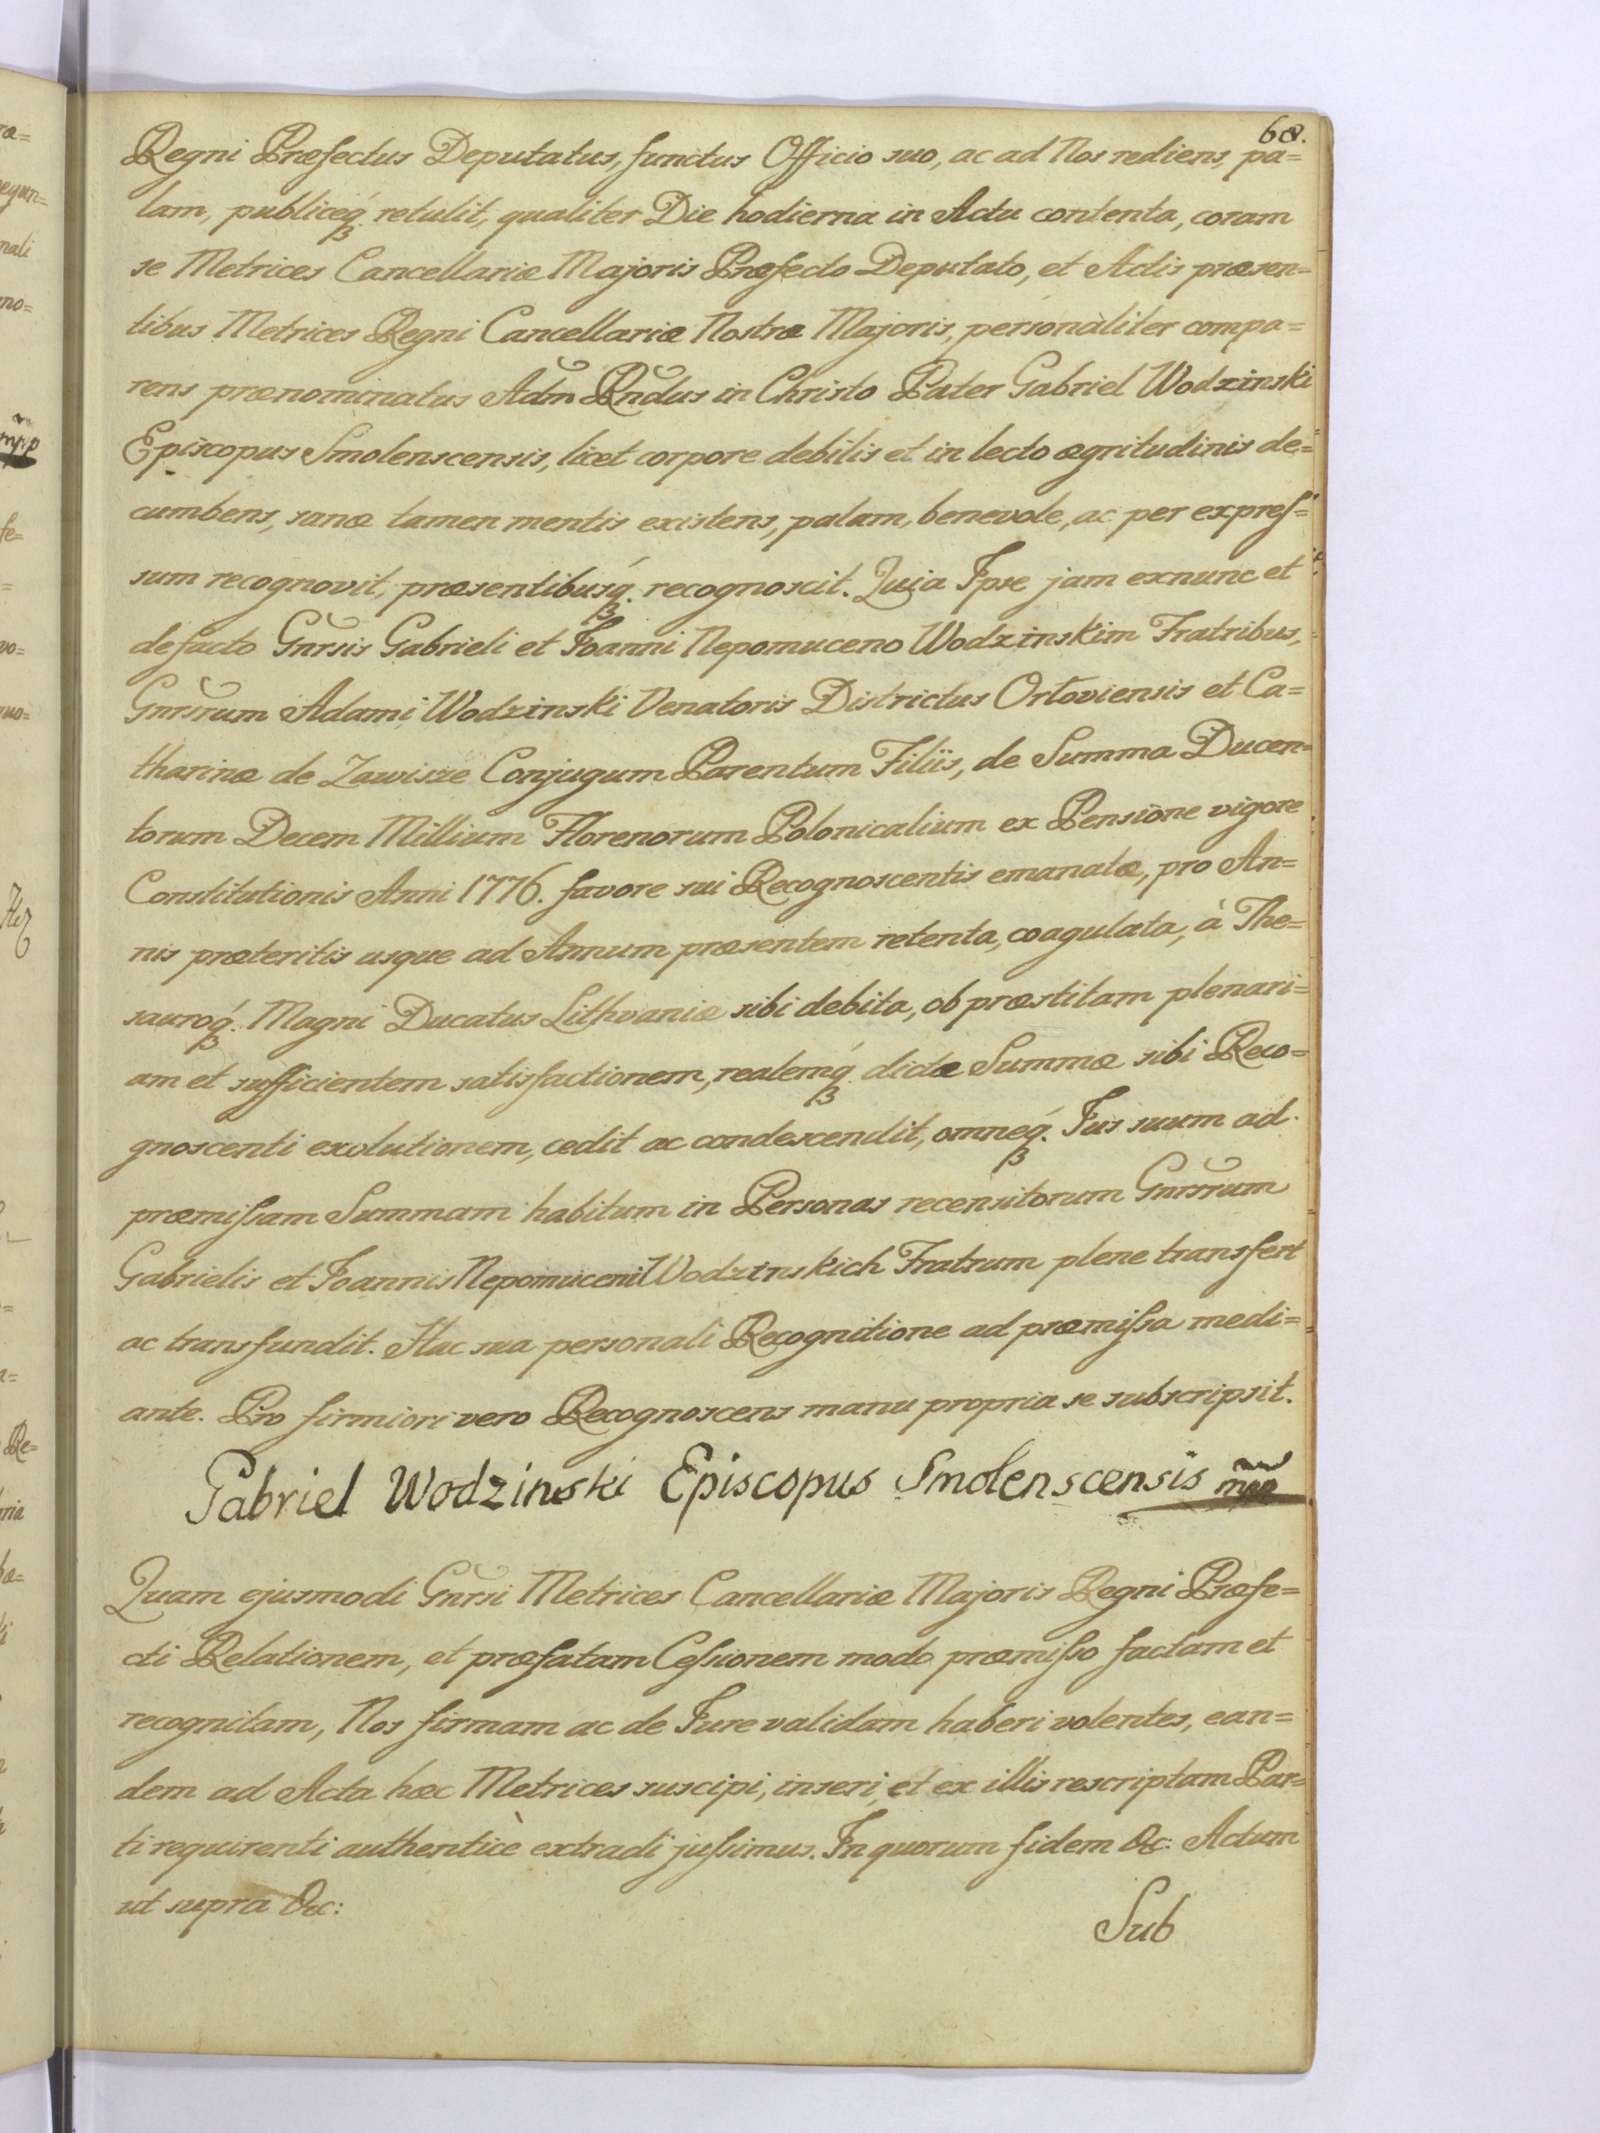 68.
Regni Præfectus Deputatus, functus Officio suo, ac ad Nos rediens, pa=
lam, publiceq́ꝫ retulit, qualiter Die hodierna in Actu contenta, coram
se Metrices Cancellariæ Majoris Præfecto Deputato, et Actis præsen=
tibus Metrices Regni Cancellariæ Nostræ Majoris, personaliter compa=
rens prænominatus Adm̃ Rñdus in Christo Pater Gabriel Wodzinski
Episcopus Smolenscensis, licet corpore debilis et in lecto ægritudinis de=
cumbens, sanæ tamen mentis existens, palam, benevole, ac per expreſ=
sum recognovit, præsentibusq́ꝫ. recognoscit. Quia Ipse jam exnunc et
de facto Gnrsis Gabrieli et Joanni Nepomuceno Wodzinskim Fratribus,
Gnrsrum Adami Wodzinski Venatoris Districtus Orłoviensis et Ca=
tharinæ de Zawisze Conjugum Parentum Filiis, de Summa Ducen=
torum Decem Millium Florenorum Polonicalium ex Pensione vigore
Constitutionis Anni 1776. favore sui Recognoscentis emanatæ, pro An=
nis præteritis usque ad Annum præsentem retenta, coagulata, à The=
sauroq́ꝫ. Magni Ducatus Lithvaniæ sibi debita, ob præstitam plenari=
am et sufficientem satisfactionem, realemq́ꝫ dictæ Summæ sibi Reco=
gnoscenti exolutionem, cedit ac condescendit, omneq́ꝫ. Jus suum ad
præmiſsam Summam habitum in Personas recensitorum Gnrsrum
Gabrielis et Joannis Nepomuceni Wodzinskich Fratrum plene transfert
ac transfundit. Hac sua personali Recognitione ad præmiſsa medi=
ante. Pro firmiori vero Recognoscens manu propria se subscripsit.
Gabriel Wodzinski Episcopus Smolenscensis mpp
Quam ejusmodi Gnrsi Metrices Cancellariæ Majoris Regni Præfe=
cti Relationem, et præfatam Ceſsionem modo præmiſso factam et
recognitam, Nos firmam ac de Jure validam haberi volentes, ean=
dem ad Acta hæc Metrices suscipi, inseri, et ex illis rescriptam Par=
ti requirenti authenticè extradi juſsimus. In quorum fidem &c: Actum
ut supra &c:
Sub